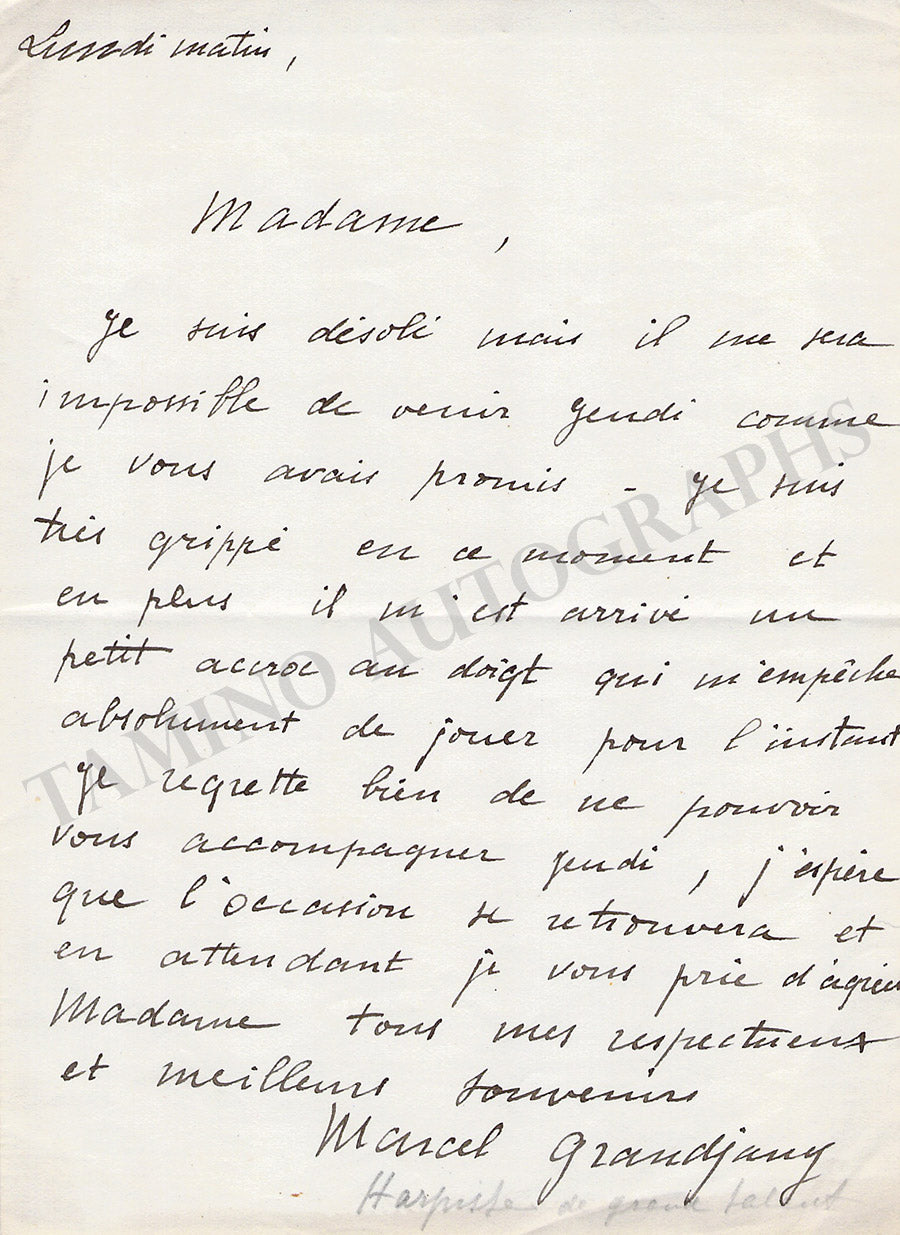 Lundi matin,
Madame,
Je suis désolé mais il me sera
impossible de venir Jeudi comme
je vous avais promis - Je suis
très grippé en ce moment et
en plus il m'est arrivé un
petit accroc au doigt qui m'empêche
absolument de jouer pour l'instant
Je regrette bien de ne pouvoir
vous accompagner Jeudi, j'espère
que l'occasion se retrouvera et
en attendant je vous prie d'agréer
Madame tous mes respectueux
et meilleurs souvenirs
Marcel Grandjany
Harpiste de grand talent
TAMINO AUTOGRAPHS